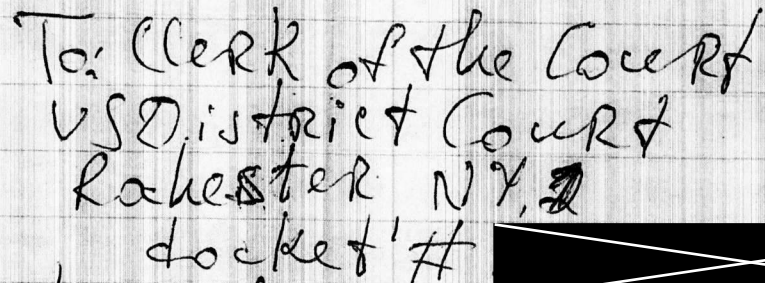 To: Clerk of the Court
US District Court
Rochester NY,
docket #